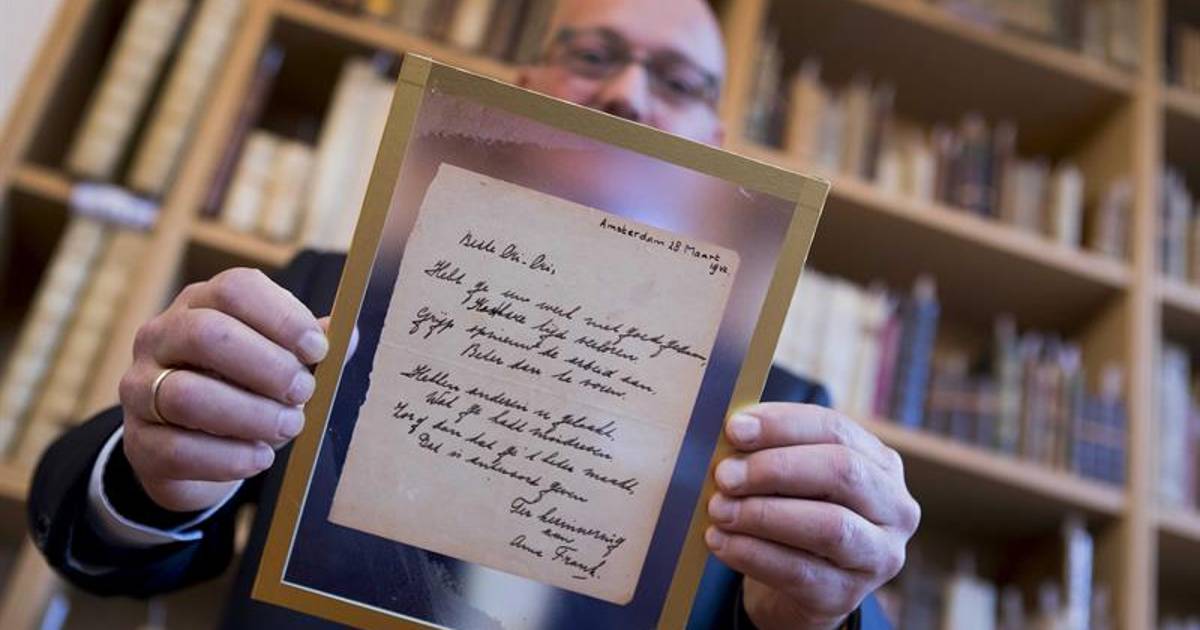 Amsterdam 28 Maart
1942.
Beste Cri-Cri,
Hebt ge uw werk niet goed gedaan,
Kostbare tijd verloren
Grijp opnieuw de arbeid aan.
Beter dan te voren.
Hebben anderen u gelaakt,
Wat ge hebt misdreven
Zorg dan dat ge 't beter maakt,
Dat is antwoord geven
Ter herinnering
aan
Anne Frank.